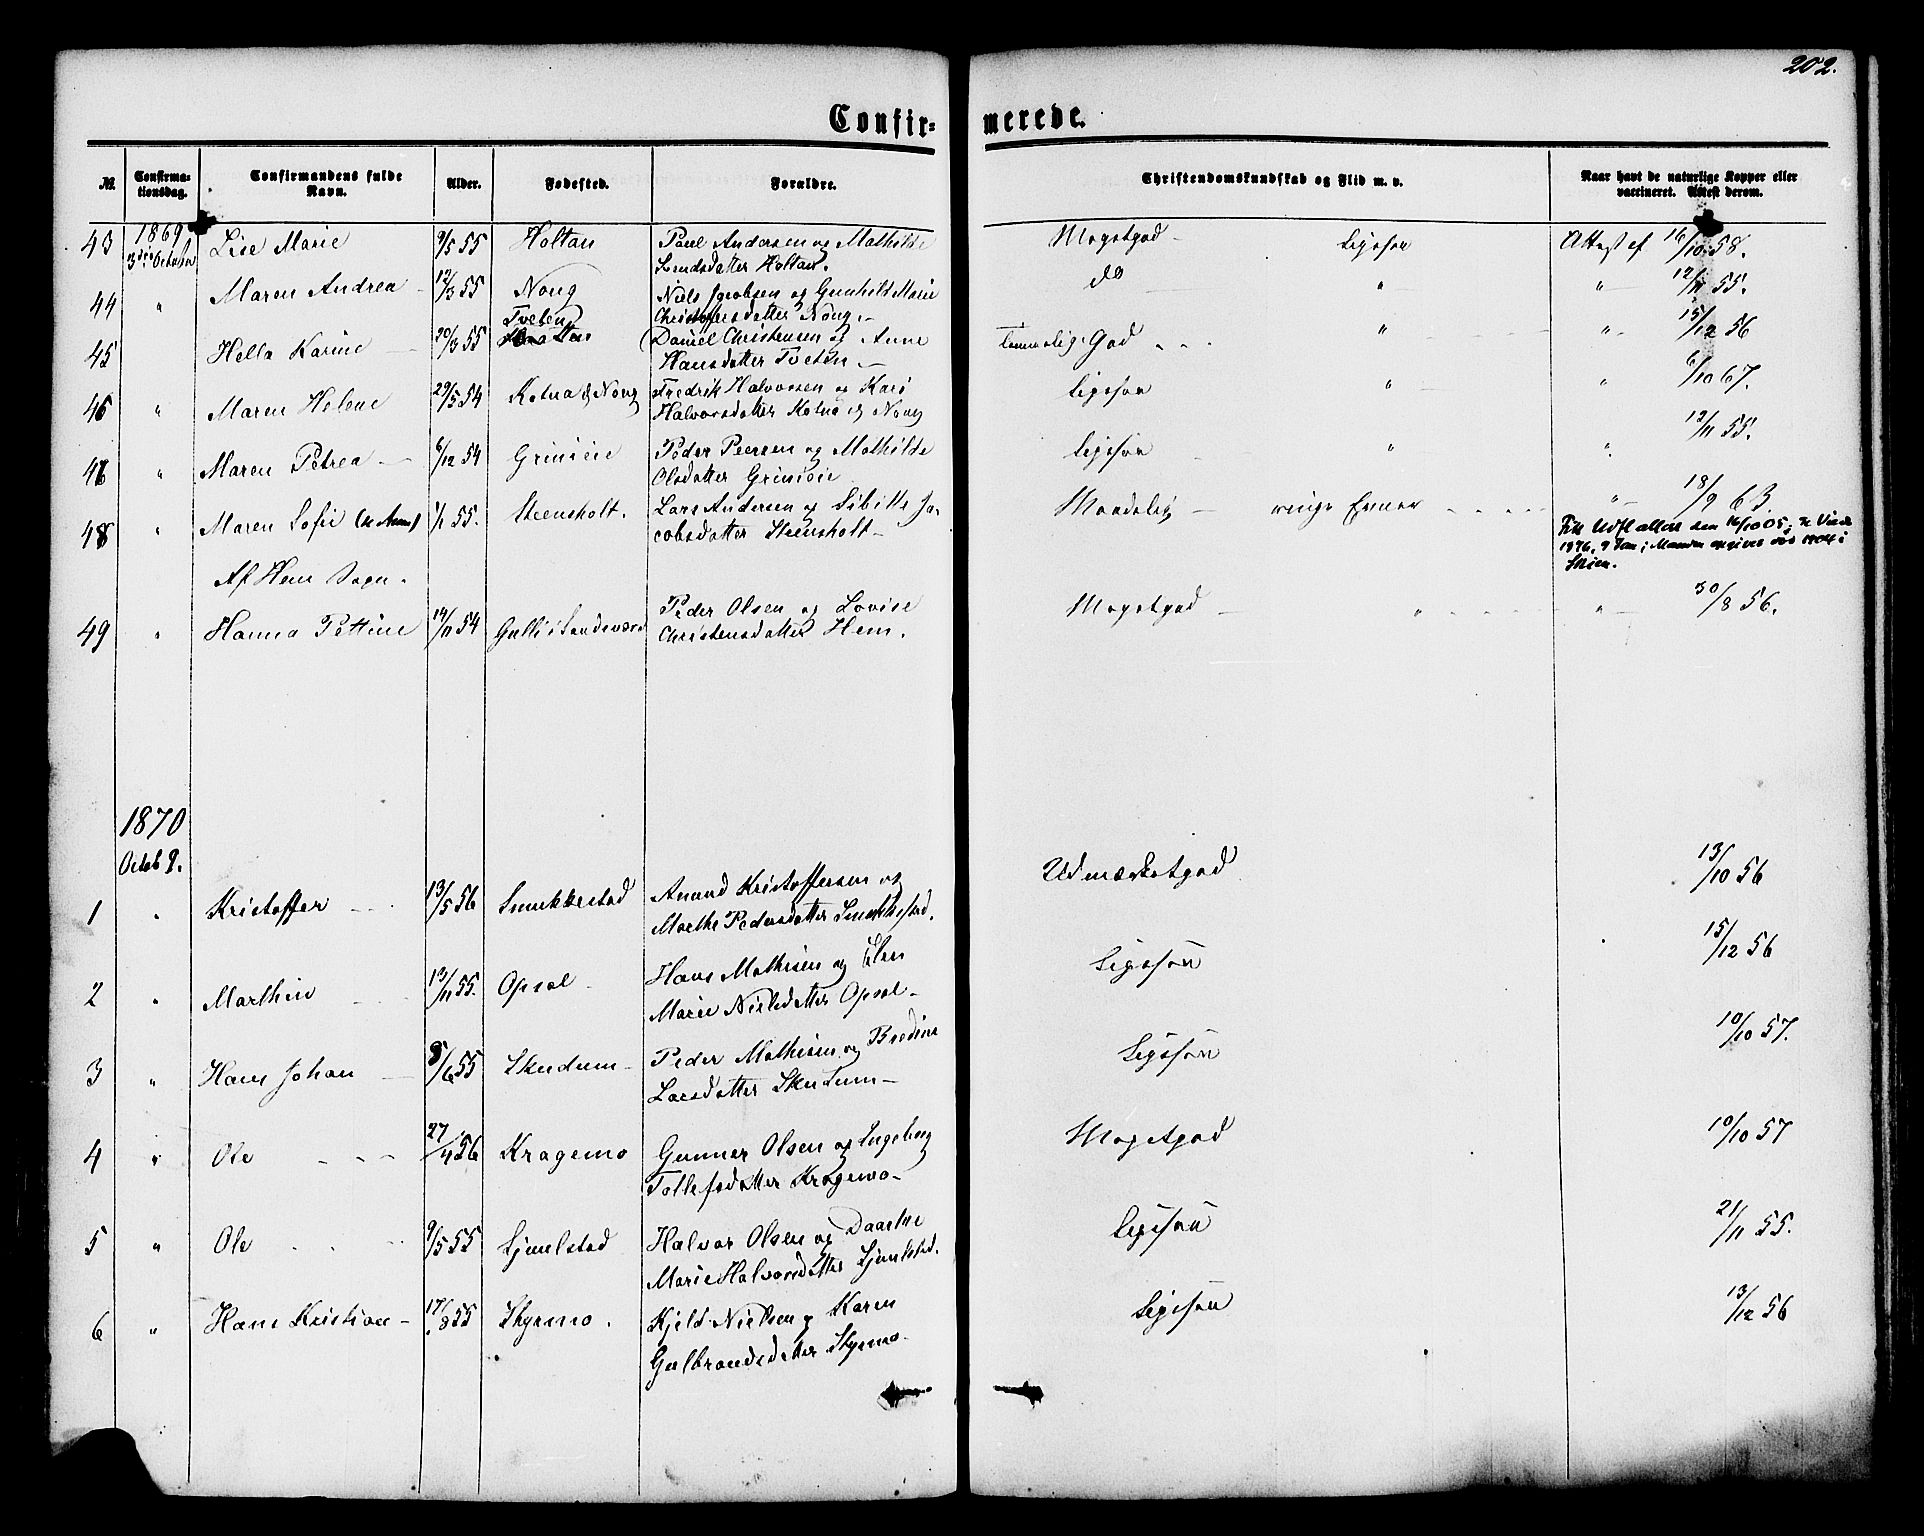 202.
Confir= merede.
№. Confirma-tionsdag. Confirmandens fulde Navn. Alder. Fødested. Forældre. Christendomskundskab og Flid m. v. Naar havt de naturlige Kopper eller vaccineret. Attest derom.
1869
43 3die October Lise Marie 9/5 55 Holtan Paul Andersen og Mathilde Meget god – Ligesom Attest af 16/10 58.
Holtan.
44 " Maren Andrea – 12/3 55 Nong Niels Jacobsen og Gunhild Marie do " " 12/11 55.
Christoffersdatter Nong. –
Tveten
45 Hella Karine – 20/3 55 Daniel Christensen og Anne Temmelig God " " 15/12 56
Hansdatter Tveten –
46 " Maren Helene 29/5 54 Kolna og Nong Fredrik Halvorsen og Kari ligesom " " 6/10 67.
Halvorsdatter Kolna og Nong
48 " Maren Petrea – 6/12 54 Grinieie Peder Peersen og Mathilde ligesom " " 12/11 55.
Olsdatter Grinieie
48 " Maren Sofie 1/1 55. Steensholt. Lars Andersen og Sibille Ja- Maadelig – ringe Evner " 18/9 63.
cobsdatter Steensholt –
Fik Udfl attest den 16/10 05;
1876, 9 Jan; Manden opgives død 1904 i
Skien.
Af Hem Sogn.
49 " Hanna Pettine 14/11 54 Gulli i Sandsværd Peder Olsen og Lovise Meget god – " " 30/8 56.
Christensdatter Hem.
1870
Octob 9.
1 " Kristoffer 13/5 56 Smukkestad Amund Kristoffersen og Udmærket god 13/10 56
Marthe Pedersdatter Smukkestad.
2 " Marthin 13/11 55. Opsal – Hans Mathisen og Elen Ligesom 15/12 56
Marie Nielsdatter Opsal –
3 " Hans Johan – 8/6 55 Skudum – Peder Mathisen og Bredine Ligesom 10/10 57.
Larsdatter Skudum –
4 " Ole 27/4 56 Kragemo Gunner Olsen og Ingeborg Meget god 10/10 57
Tollefsdatter Kragemo –
5 " Ole 9/5 55 Ljumlstad Halvor Olsen og Daarthe Ligesom 21/11 55.
Marie Halvorsdatter
6 " Hans Kristian – 17/8 55 Skyemo. Kjeld Nielsen og Karen Ligesom 13/12 56
Gulbrandsdatter Skyemo –